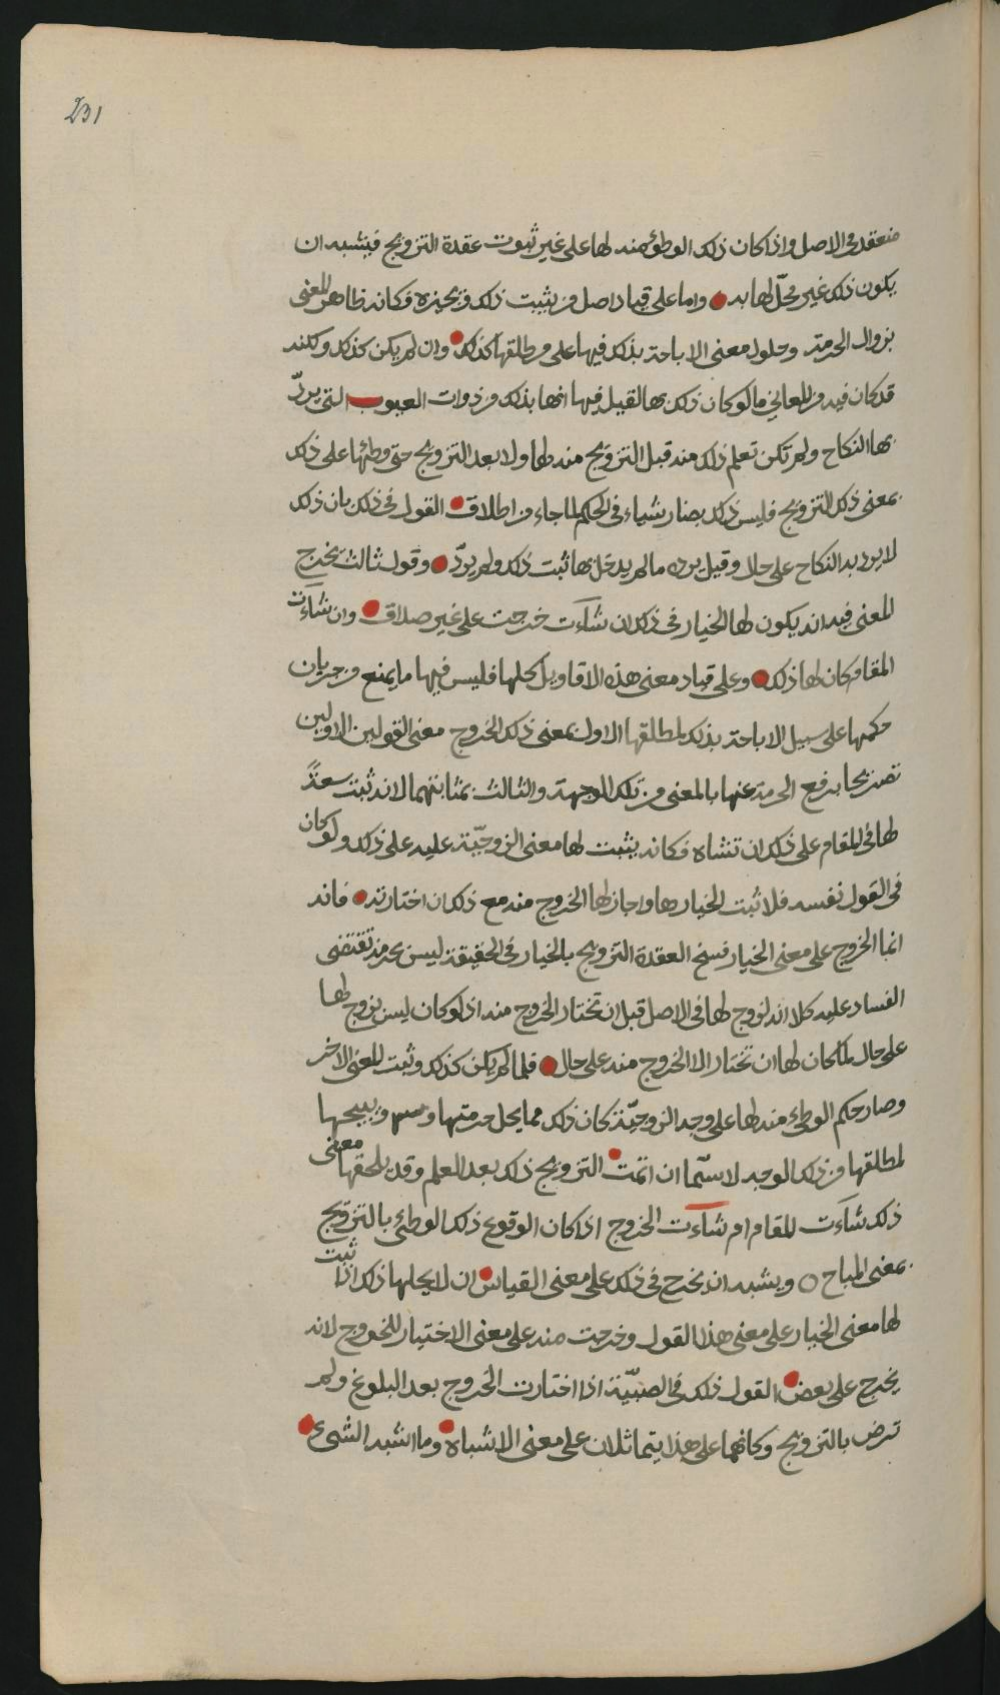 231
منعقد في الاصل واذا كان ذلك الوطؤ منه لها على غير ثبوت عقدة التزويج فيشبه ان
يكون ذلك غير محلّ لها به واما على قياد اصل من يثبت ذلك ويجيزه فكانه ظاهر المعنى
بزوال الحرمة وحلول معنى الاباحة بذلك فيها على من طلقها كذلك وان لم يكن كذلك ولكنه
قد كان فيه من المعاني ما لو كان ذلك بها لقيل فيها انها بذلك من ذوات العيوب التي يردّ
بها النكاح ولم تكن تعلم ذلك منه قبل التزويج منه لها ولا بعد التزويج حتى وطئها على ذلك
بمعنى ذلك التزويج فليس ذلك بضار شياء في الحكم لما جاء من اطلاق القول في ذلك بان ذلك
لا يرد به النكاح على حال وقيل يرد ما لم يدخل بها ثبت ذلك ولم يردّ وقول ثالث يخرج
المعنى فيه انه يكون لها الخيار في ذلك ان شآءت خرجت على غير صداق وان شآءت
المقام كان لها ذلك وعلى قياد معنى هذه الاقاويل كلها فليس فيها ما يمنع من جريان
حكمها على سبيل الاباحة بذلك لمطلقها الاول بمعنى ذلك الخروج معنى القولين الاولين
تصريحا برفع الحرمة عنها بالمعنى من تلك الوجهة والثالث بمثابتهما لانه ثبت سعةً
لها في المقام على ذلك ان تشاه فكانه يثبت لها معنى الزوجيّة عليه على ذلك ولو كان
في القول نفسه فلا ثبت الخيار لها واجاز لها الخروج منه مع ذلك ان اختارته فانه
انما الخروج على معنى الخيار فسخ العقدة التزويج بالخيار في الحقيقة ليس بحرمة تقتضي
الفساد عليه كلا انه لزوج لها في الاصل قبل ان تختار الخروج منه اذ لو كان ليس بزوج لها
على حال لما كان لها ان تختار الا الخروج منه على حال فلما لم يكن كذلك وثبت المعنى الاخر
وصار حكم الوطئ منه لها على وجه الزوجيّة كان ذلك مما يحل حرمتها ويبيحها
لمطلقها من ذلك الوجه لا سيّما ان اتمت التزويج ذلك بعد العلم وقد يلحقها معنى
ذلك شآءت المقام ام شآءت الخروج اذا كان الوقوع ذلك الوطئ بالتزويج
بمعنى المباح ويشبه ان يخرج في ذلك على معنى القياس ان لا يحلها ذلك اذا ثبت
لها معنى الخيار على معنى هذا القول وخرجت منه على معنى الاختيار للخروج لانه
يخرج على بعض القول ذلك في الصبيّة اذا اختارت الخروج بعد البلوغ ولم
ترض بالتزويج وكانهما على هذا يتماثلان على معنى الاشباه وما اشبه الشيء